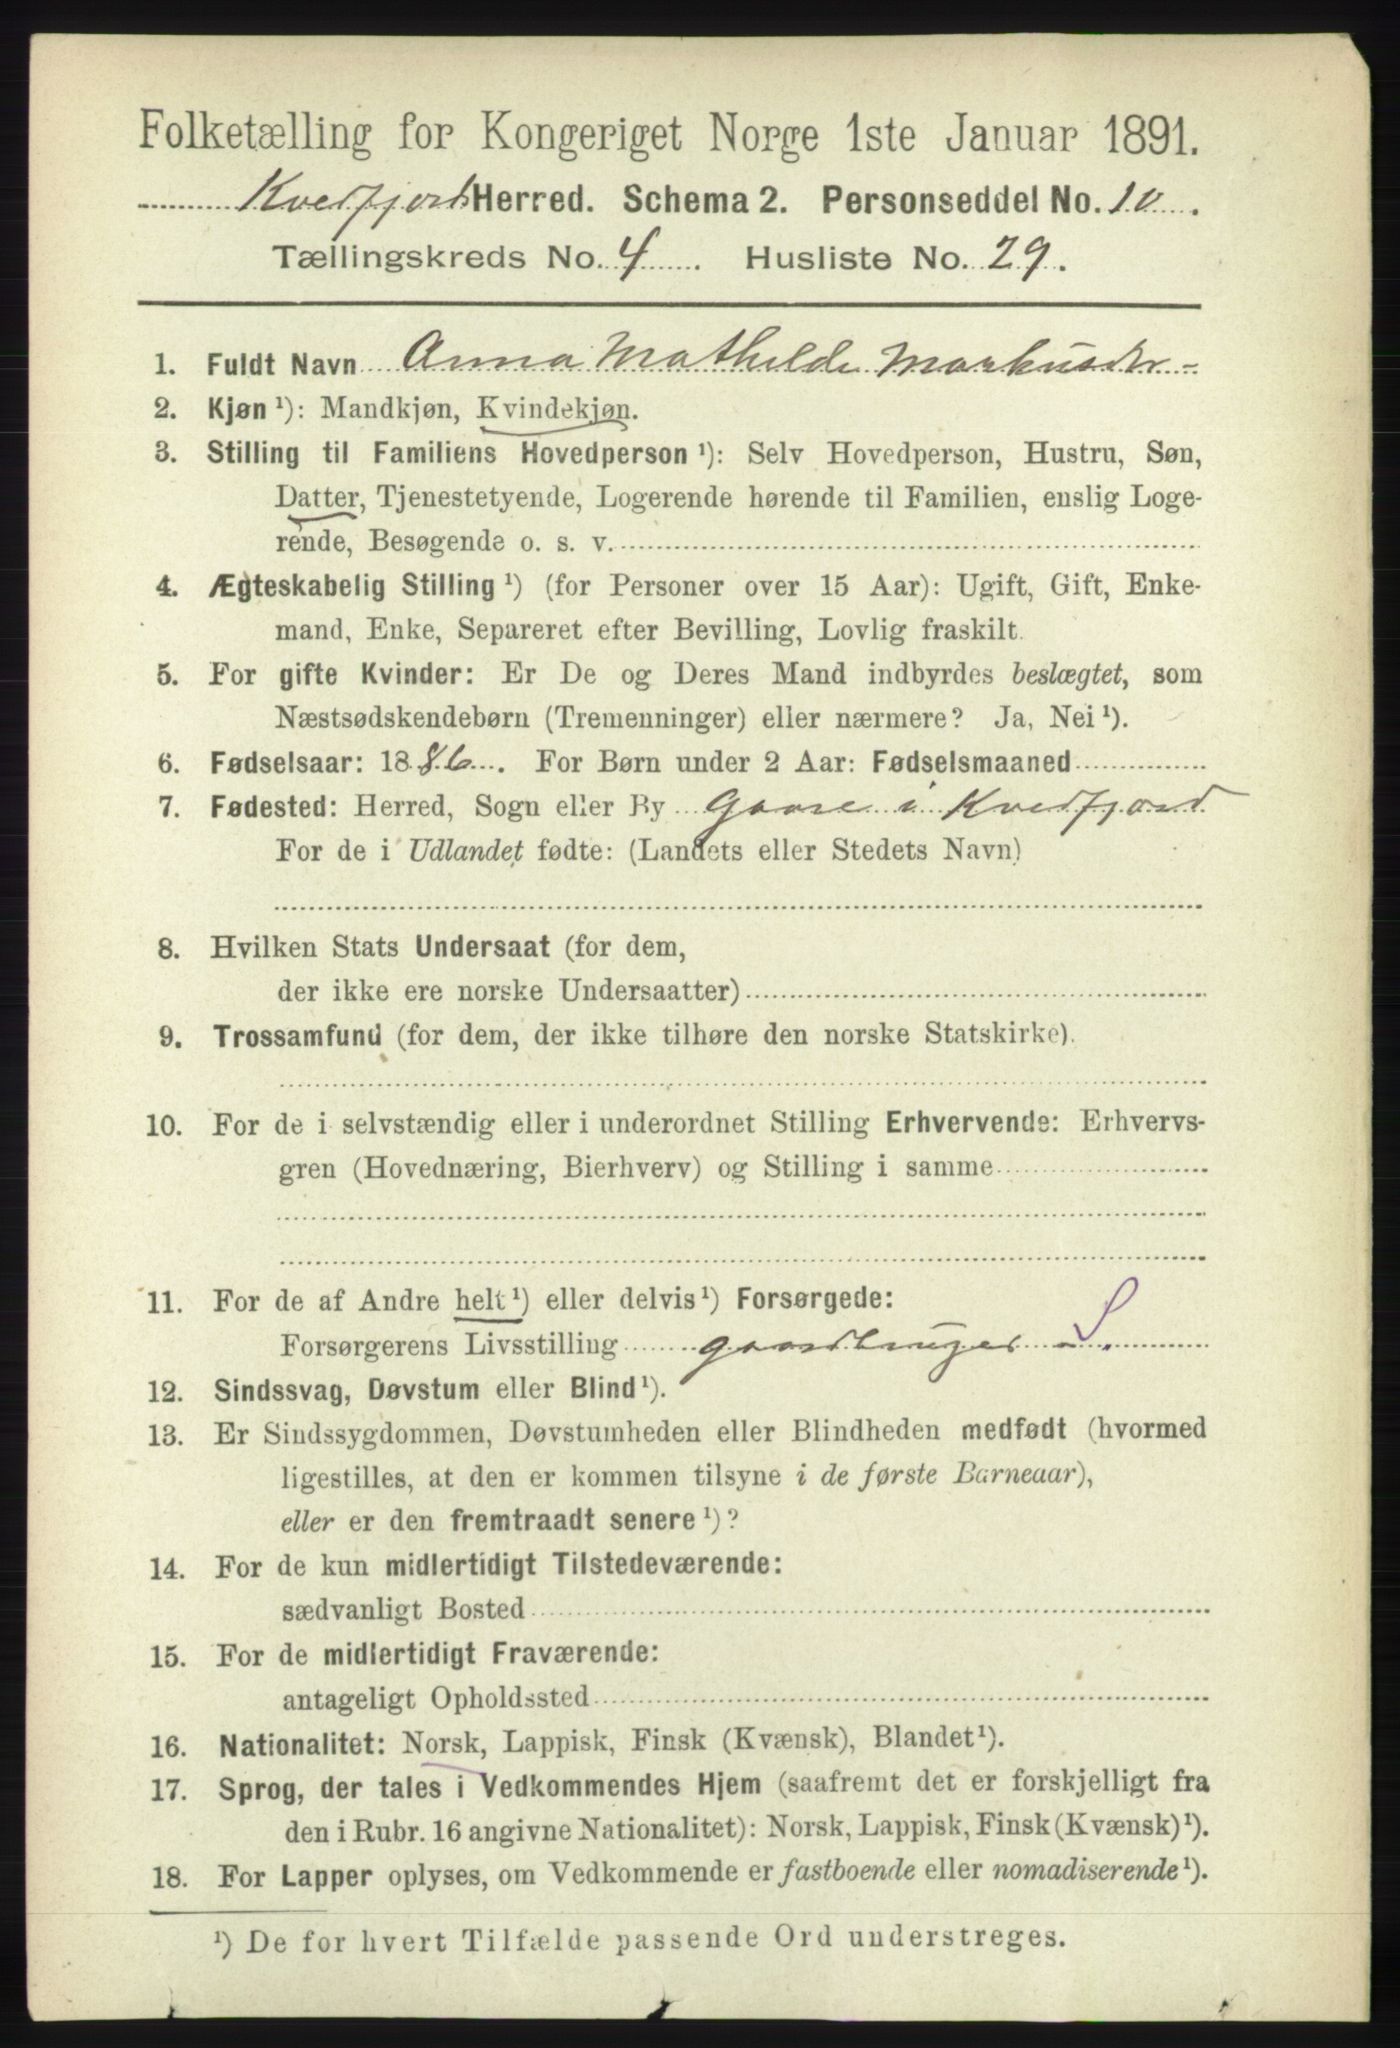 Folketælling for Kongeriget Norge 1ste Januar 1891.
Kvedfjord Herred. Schema 2. Personseddel No. 10.
Tællingskreds No. 4. Husliste No. 29.
1. Fuldt Navn Anna Mathilde Markusdtr -
2. Kjøn ¹): Mandkjøn, Kvindekjøn.
3. Stilling til Familiens Hovedperson ¹): Selv Hovedperson, Hustru, Søn,
Datter, Tjenestetyende, Logerende hørende til Familien, enslig Loge-
rende, Besøgende o. s. v.
4. Ægteskabelig Stilling ¹) (for Personer over 15 Aar): Ugift, Gift, Enke-
mand, Enke, Separeret efter Bevilling, Lovlig fraskilt.
5. For gifte Kvinder: Er De og Deres Mand indbyrdes beslægtet, som
Næstsødskendebørn (Tremenninger) eller nærmere? Ja, Nei ¹).
6. Fødselsaar: 1886. For Børn under 2 Aar: Fødselsmaaned
7. Fødested: Herred, Sogn eller By Gaare i Kvedfjord
For de i Udlandet fødte: (Landets eller Stedets Navn)
8. Hvilken Stats Undersaat (for dem,
der ikke ere norske Undersaatter)
9. Trossamfund (for dem, der ikke tilhøre den norske Statskirke).
10. For de i selvstændig eller i underordnet Stilling Erhvervende: Erhvervs-
gren (Hovednæring, Bierhverv) og Stilling i samme
11. For de af Andre helt ¹) eller delvis ¹) Forsørgede:
Forsørgerens Livsstilling gaardbruger - S.
12. Sindssvag, Døvstum eller Blind ¹).
13. Er Sindssygdommen, Døvstumheden eller Blindheden medfødt (hvormed
ligestilles, at den er kommen tilsyne i de første Barneaar),
eller er den fremtraadt senere ¹)?
14. For de kun midlertidigt Tilstedeværende:
sædvanligt Bosted
15. For de midlertidigt Fraværende:
antageligt Opholdssted
16. Nationalitet: Norsk, Lappisk, Finsk (Kvænsk), Blandet ¹).
17. Sprog, der tales i Vedkommendes Hjem (saafremt det er forskjelligt fra
den i Rubr. 16 angivne Nationalitet): Norsk, Lappisk, Finsk (Kvænsk) ¹).
18. For Lapper oplyses, om Vedkommende er fastboende eller nomadiserende ¹).
¹) De for hvert Tilfælde passende Ord understreges.